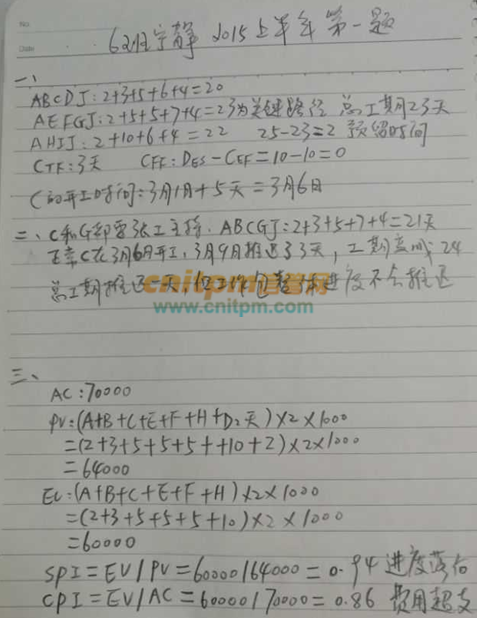 No.
Date
62班宁静 2015上半年第一题
一、
ABCDJ:2+3+5+6+4=20
AEFGJ:2+5+5+7+4=23为关键路径 总工期23天
AHIJ:2+10+6+4=22 25-23=2 预留时间
CTF:3天 CFF:DES-CEF=10-10=0
C的开工时间:3月1日+5天=3月6日
二、C和G都要张工主持. ABCGJ:2+3+5+7+4=21天
正常C在3月6日开工,3月9日推迟了3天,工期变成24
总工期推迟一天,但工作包整体进度不会推迟
cnitpm信管网
www.cnitpm.com
三、
AC:70000
PV:(A+B+C+E+F+H+D2天)×2×1000
=(2+3+5+5+5++10+2)×2×1000
=64000
EV:(A+B+C+E+F+H)×2×1000
=(2+3+5+5+5+10)×2×1000
=60000
SPI=EV/PV=60000/64000=0.94 进度落后
CPI=EV/AC=60000/70000=0.86 费用超支